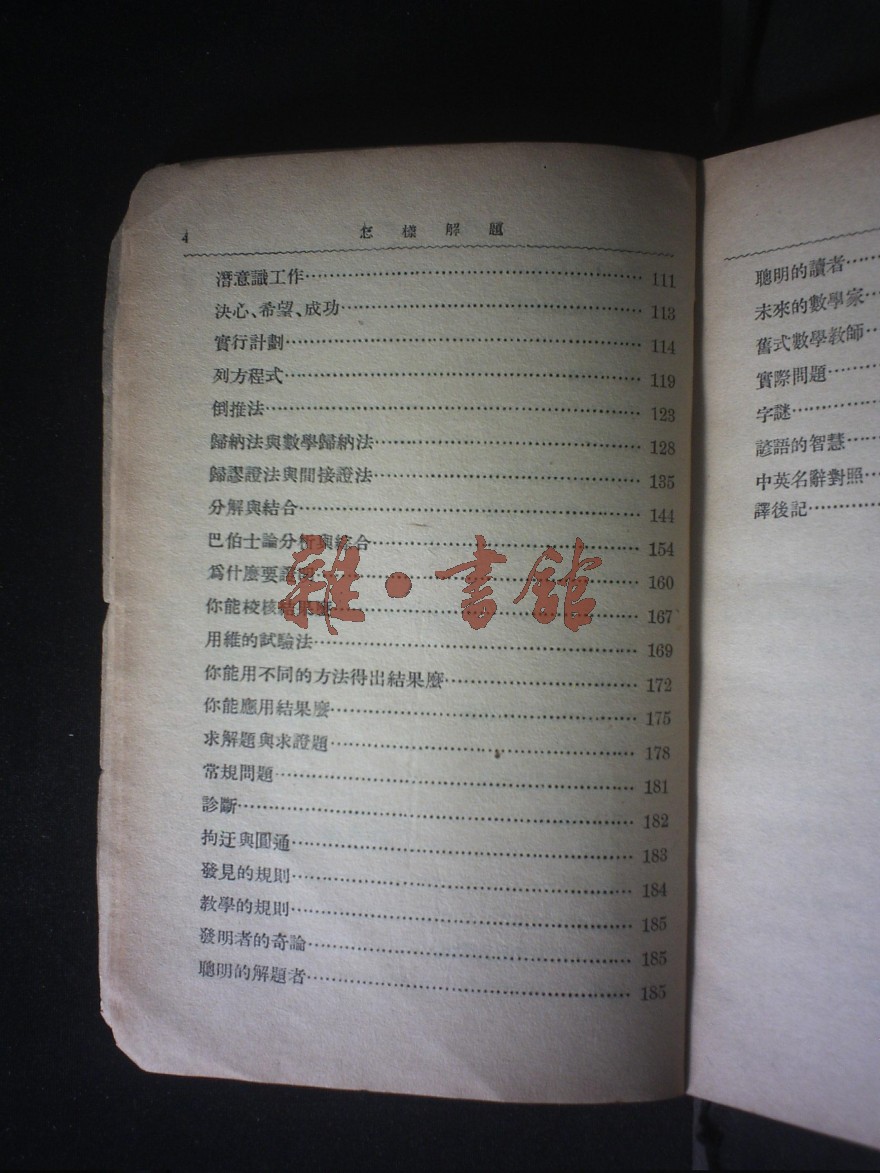 4 怎樣解題
潛意識工作 111
決心、希望、成功 113
實行計劃 114
列方程式 119
倒推法 123
歸納法與數學歸納法 128
歸謬證法與間接證法 135
分解與結合 144
巴伯士論分析與綜合 154
爲什麼要證明 160
你能校核結果麼 167
用維的試驗法 169
你能用不同的方法得出結果麼 172
你能應用結果麼 175
求解題與求證題 178
常規問題 181
診斷 182
拘迂與圓通 183
發見的規則 184
教學的規則 185
發明者的奇論 185
聰明的解題者 185
聰明的讀者
未來的數學家
舊式數學教師
實際問題
字謎
諺語的智慧
中英名辭對照
譯後記
雜·書館